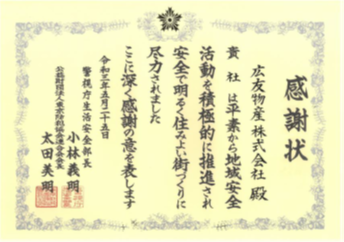 感謝状
広友物産株式会社 殿
貴社は平素から地域安全
活動を積極的に推進され
安全で明るく住みよい街づくりに
尽力されました
ここに深く感謝の意を表します
令和三年五月二十五日
警視庁生活安全部長
小林義明
公益財団法人東京防犯協会連合会会長
太田美明